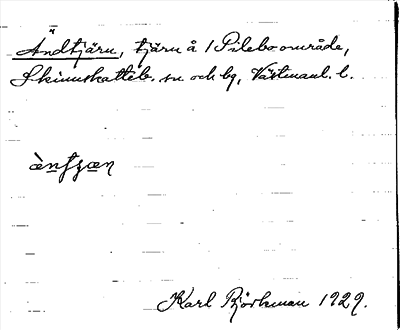 Ändtjärn, tjärn å 1 Pilebo område,
Skinnskatteb. sn och bg, Västmanl. l.
Karl Björkman 1929.